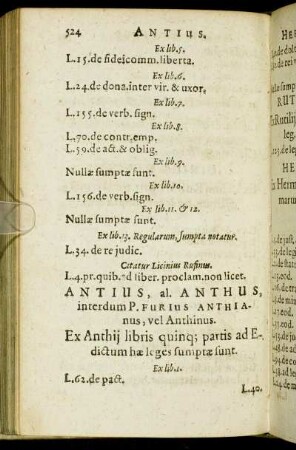 524 ANTIUS.
Ex lib.5.
L.15.de fideicomm.liberta.
Ex lib.6.
L.24.de dona.inter vir. & uxor,
Ex lib.7.
L.155.de verb.sign.
Ex lib.8.
L.70.de contr.emp.
L.59.de act.& oblig.
Ex lib.9.
Nullæ sumptæ sunt.
Ex lib.10.
L.156.de verb.sign.
Ex lib.11. & 12.
Nullæ sumptæ sunt.
Ex lib.13. Regularum, sumpta notatur.
L.34.de re judic.
Citatur Licinius Rufinus.
L.4.pr.quib.ad liber. proclam.non licet.
ANTIUS, al. ANTHUS,
interdum P. FURIUS ANTHIA-
nus, vel Anthinus.
Ex Anthij libris quinq; partis ad E-
dictum hæ leges sumptæ sunt.
Ex lib.1.
L.62.de pact.
L.40.